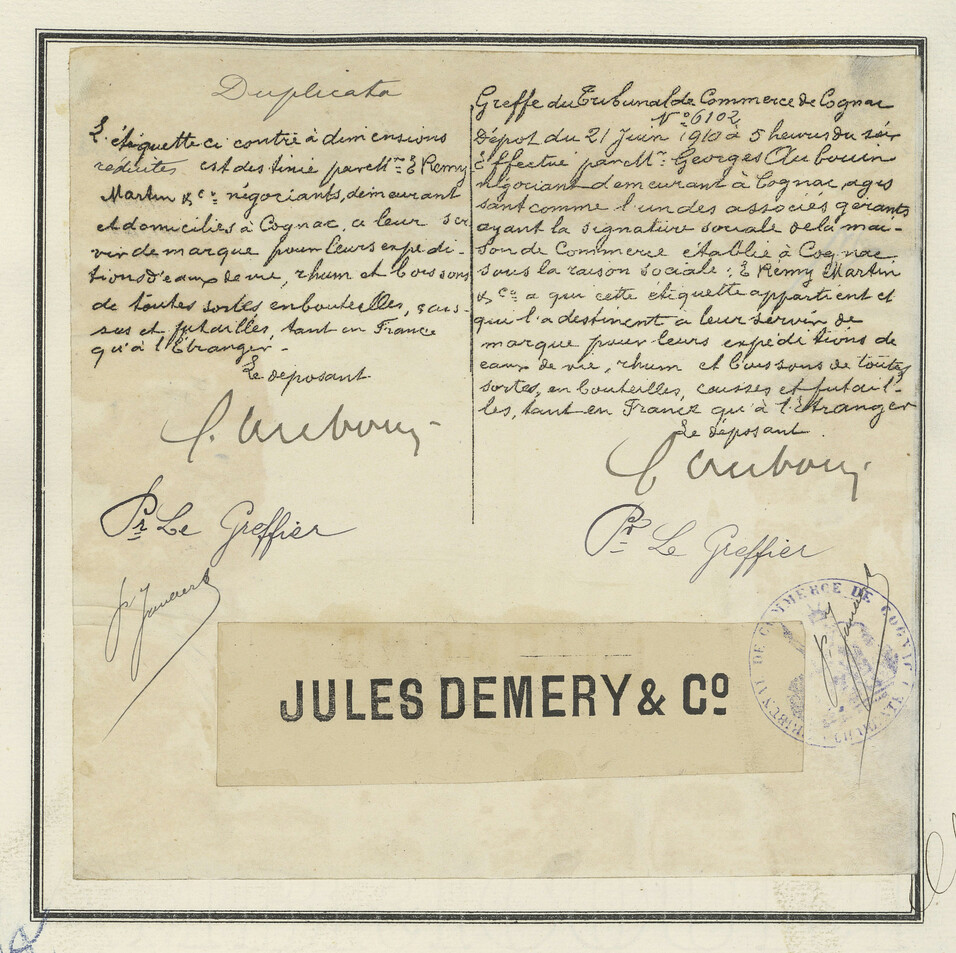 Duplicata
L'étiquette ci contre à dimensions
réduites est destinée par Mrs E Remy
Martin & Co négociants, demeurant
et domiciliés à Cognac, a leur ser
vir de marque pour leurs expédi-
tions d'eaux de vie, rhum et boissons
de toutes sortes en bouteilles, cais-
ses et futailles, tant en France
qu'à l'Étranger.-
Le déposant
Pr Le Greffier
Greffe du Tribunal de Commerce de Cognac
No 6102
Dépot du 21 Juin 1910 à 5 heures du soir
Effectué par Mr Georges Aubouin
négociant demeurant à Cognac, agis
sant comme l'un des associés gérants
ayant la signature sociale de la mai-
son de Commerce établie à Cognac
sous la raison sociale: E Remy Martin
& Co a qui cette étiquette appartient et
qui l'a destinent a leur servir de
marque pour leurs expéditions de
eaux de vie, rhum et boissons de toutes
sortes, en bouteilles, caisses et futail-
les, tant en France qu'à l'étranger
Le déposant
Pr Le Greffier
TRIBUNAL DE COMMERCE DE COGNAC
JULES DEMERY & Co